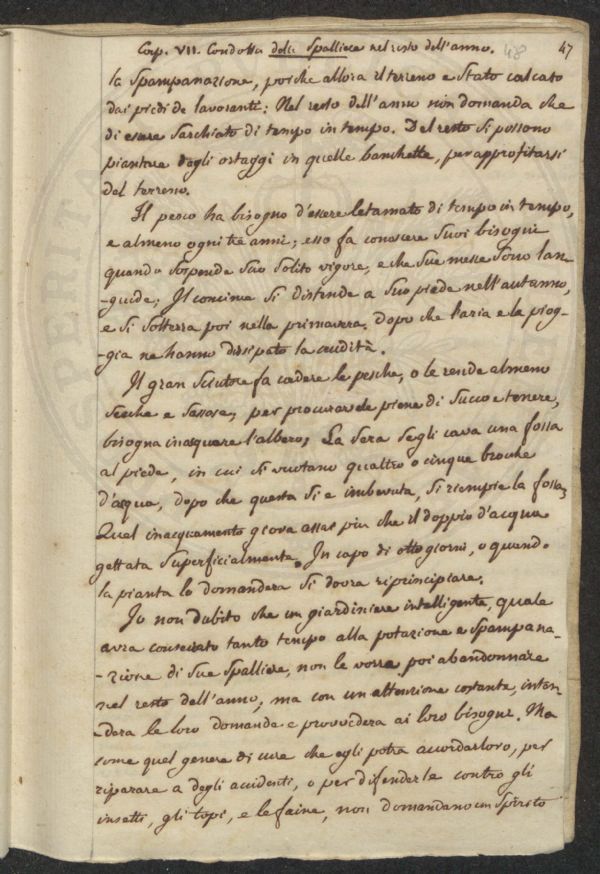 Cap. VII. Condotta delle Spalliere nel resto dell'anno. 48 47
la spampanazione, poiche allora il terreno e stato calcato
dai piedi de lavoranti: Nel resto dell'anno non domanda che
di essere sarchiato di tempo in tempo. Del resto si possono
piantare degli ortaggi in quelle banchette, per approfitarsi
del terreno.
Il pesco ha bisogno d'essere letamato di tempo in tempo,
e almeno ogni tre anni; esso fa conoscere suoi bisogni
quando sospende suo solito vigore, e che sue messe sono lan-
-guide; Il concime si distende a suo piede nell'autunno,
e si sotterra poi nella primavera. dopo che l'aria e la piog-
-gia ne hanno dissipato la crudità.
Il gran sciutore fa cadere le pesche, o le rende almeno
secche e sassose, per procurarsele piene di succo e tenere,
bisogna inacquare l'albero, La sera segli cava una fossa
al piede, in cui si vuotano quattro o cinque brocche
d'acqua, dopo che questa si e imbevuta, si riempie la fossa,
Qual inacquamento giova assai piu che il doppio d'acqua
gettata superficialmente. In capo di otto giorni, o quando
la pianta lo domandera si dovra riprincipiare.
Io non dubito che un giardiniere intelligente, quale
avra consecrato tanto tempo alla potazione e spampana-
-zione di sue spalliere, non le vorra poi abandonnare
nel resto dell'anno, ma con un attenzione costante, inten-
-dera le loro domande e provvedera ai loro bisogni. Ma
come quel genere di cure che egli potra accordar loro, per
riparare a degli accidenti, o per difenderle contro gli
insetti, gli topi, e le faine, non domandano un spirito